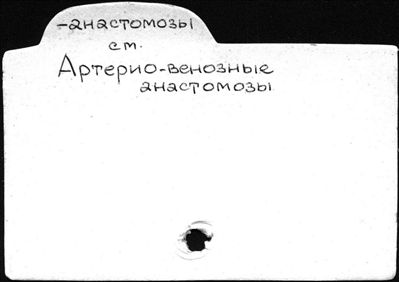 -анастомозы
см.
Артерио-венозные
анастомозы